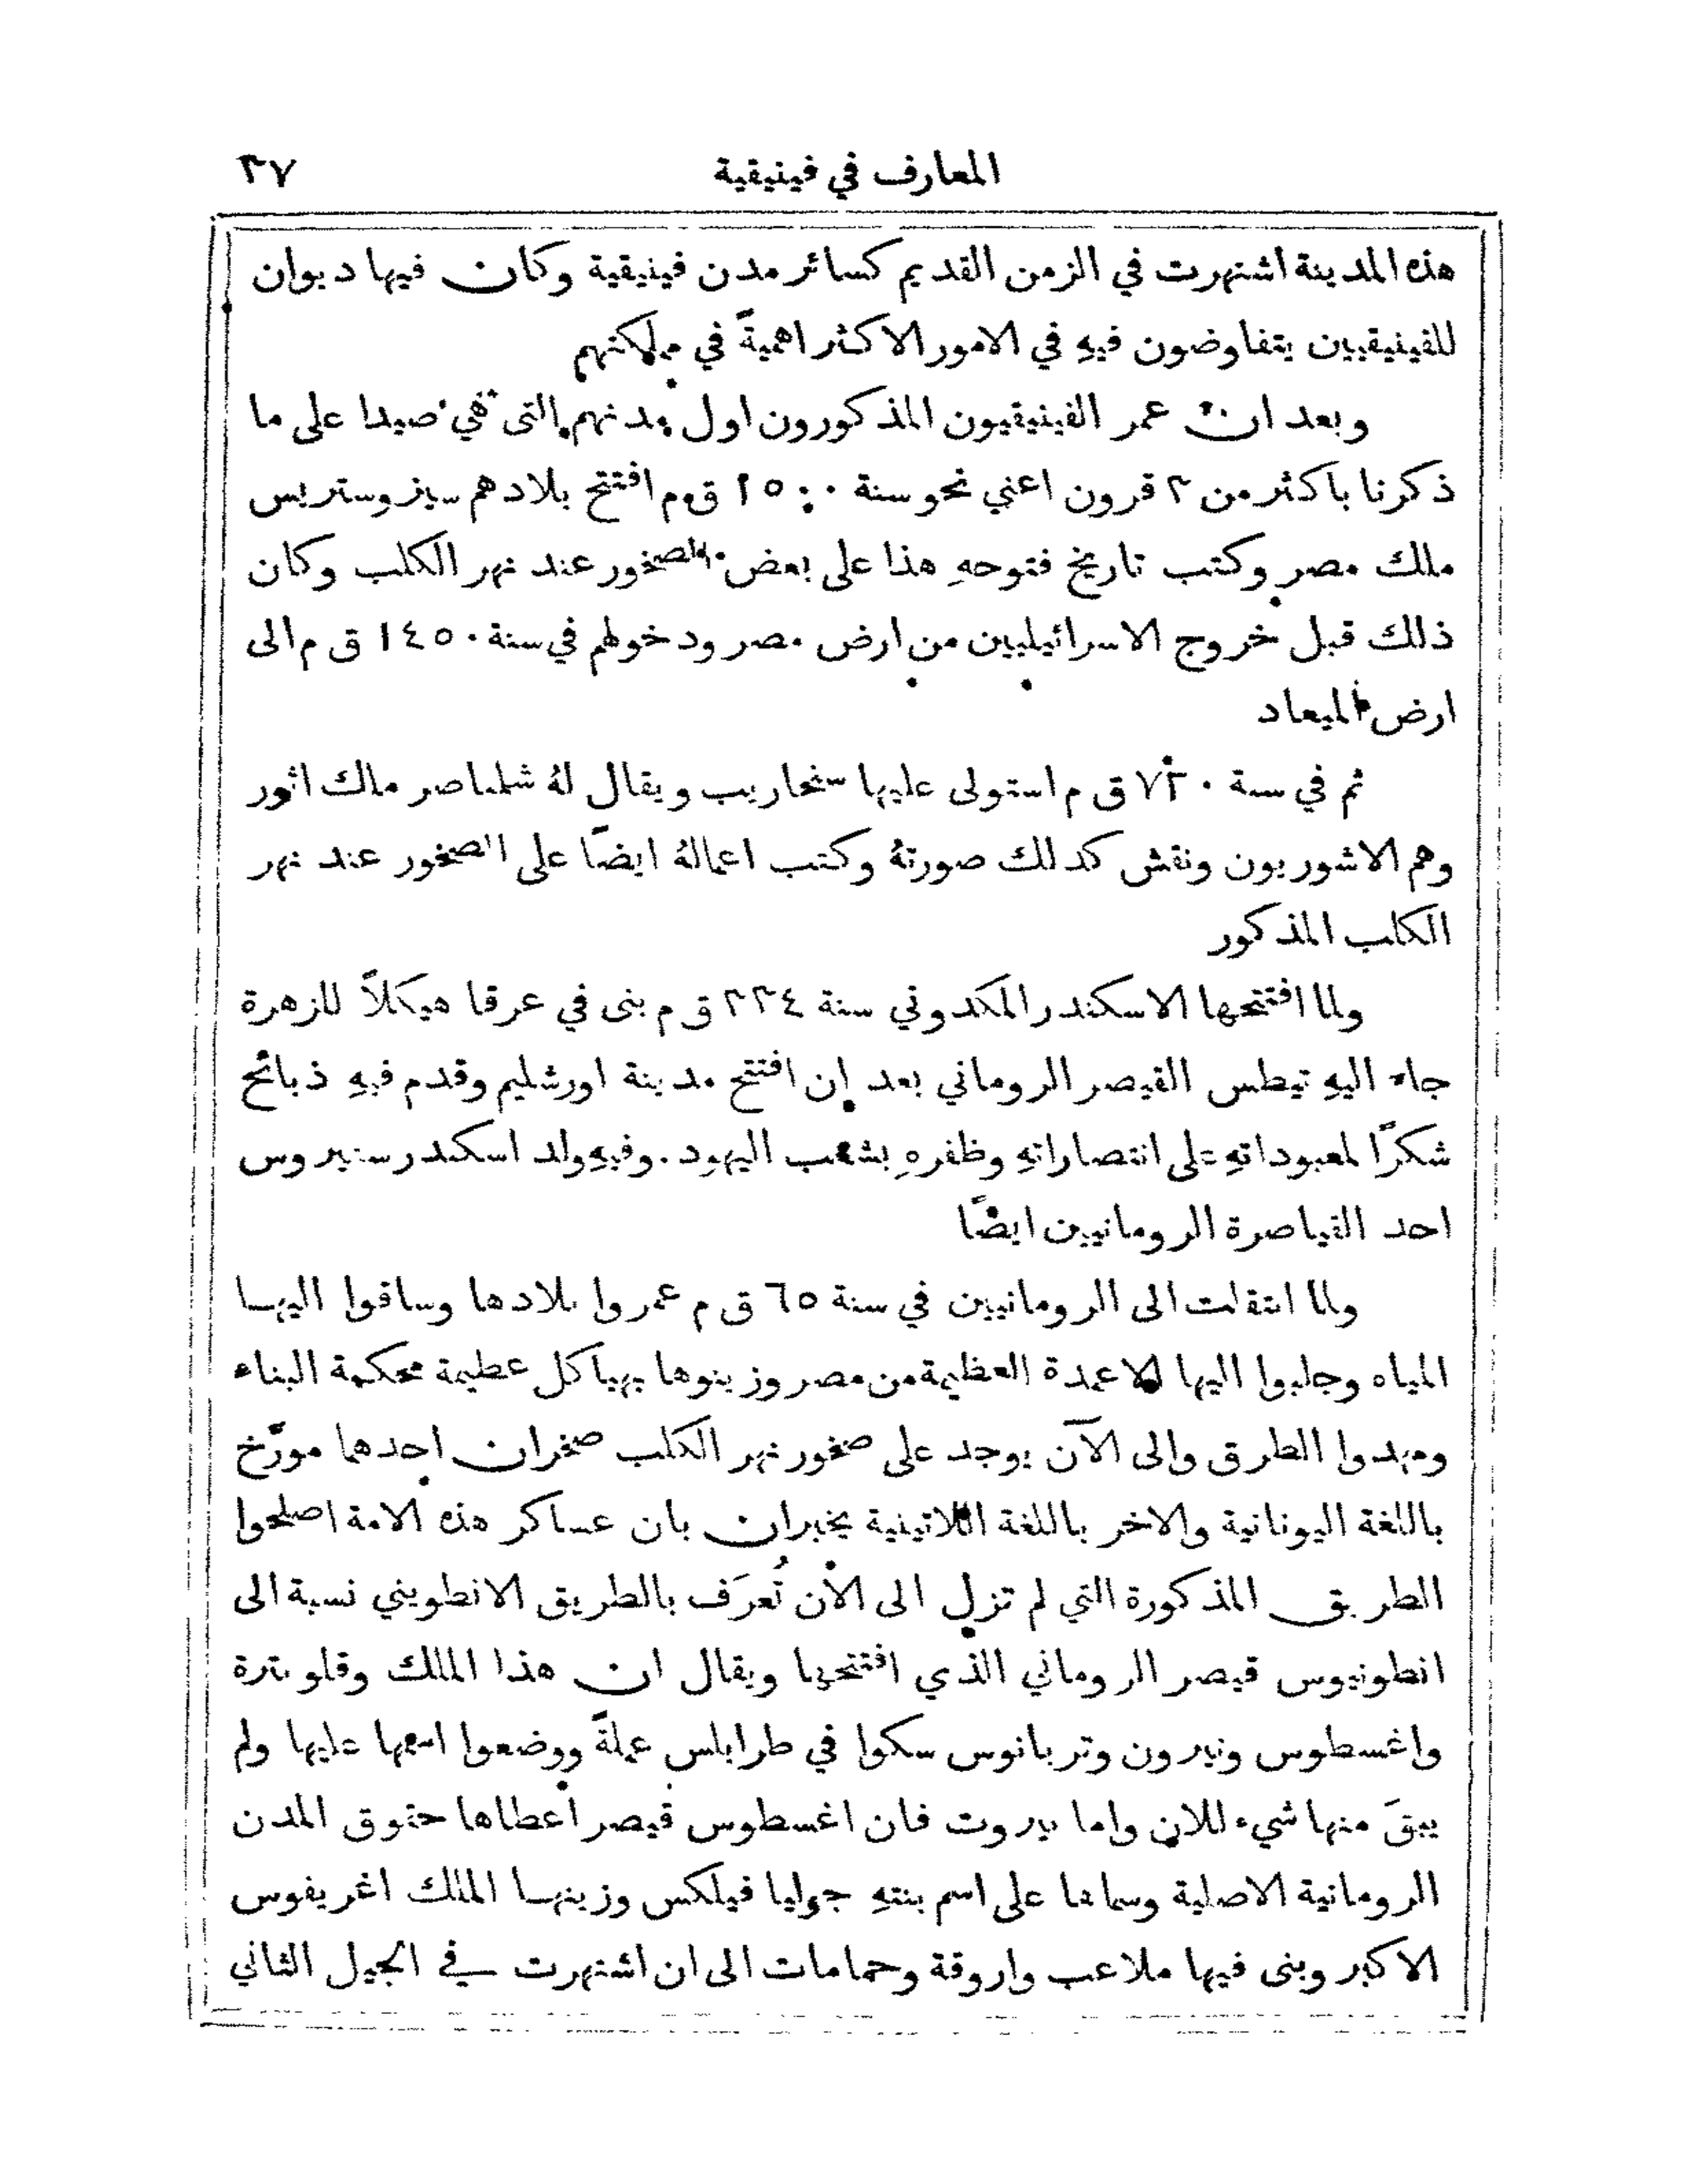 المعارف في فينيقية ٣٧
هذه المدينة اشتهرت في الزمن القديم كسائر مدن فينيقية وكان فيها ديوان
للفينيقيين يتفاوضون فيهِ في الامور الاكثر اهميةً في مملكتهم
وبعد ان عمر الفينيقيون المذكورون اول مدنهم التى هي صيدا على ما
ذكرنا باكثر من ٣ قرون اعني نحو سنة ١٥٠٠ ق م افتتح بلادهم سيزوستريس
ملك مصر وكتب تاريخ فتوحهِ هذا على بعض الصخور عند نهر الكلب وكان
ذلك قبل خروج الاسرائيليين من ارض مصر ودخولهم في سنة ١٤٥٠ ق م الى
ارض الميعاد
ثم في سنة ٧٢٠ ق م استولى عليها سنحاريب ويقال لهُ شلمناصر ملك اثور
وهم الاشوريون ونقش كذلك صورتهُ وكتب اعمالهُ ايضًا على الصخور عند نهر
الكلب المذكور
ولما افتتحها الاسكندر المكدوني سنة ٣٣٤ ق م بنى في عرقا هيكلاً للزهرة
جاء اليهِ تيطس القيصر الروماني بعد ان افتتح مدينة اورشليم وقدم فيهِ ذبائح
شكرًا لمعبوداتهِ على انتصاراتهِ وظفرهِ بشعب اليهود. وفيهِ ولد اسكندر سنيروس
احد القياصرة الرومانيين ايضًا
ولما انتقلت الى الرومانيين في سنة ٦٥ ق م عمروا بلادها وساقوا اليها
المياه وجلبوا اليها الاعمدة العظيمة من مصر وزينوها بهياكل عظيمة محكمة البناء
ومهدوا الطرق والى الآن يوجد على صخور نهر الكلب صخران احدهما مورَّخ
باللغة اليونانية والاخر باللغة اللاتينية يخبران بان عساكر هذه الامة اصلحوا
الطريق المذكورة التي لم تزل الى الأن تُعرَف بالطريق الانطويني نسبة الى
انطونيوس قيصر الروماني الذي افتتحها ويقال ان هذا الملك وقلوبترة
واغسطوس ونيرون وتريانوس سكوا في طرابلس عملةً ووضعوا اسمها عليها ولم
يبقَ منها شيء للان واما بيروت فان اغسطوس قيصر اعطاها حقوق المدن
الرومانية الاصلية وسماها على اسم بنتهِ جوليا فيلكس وزينها الملك اغريفوس
الاكبر وبنى فيها ملاعب واروقة وحمامات الى ان اشتهرت في الجيل الثاني